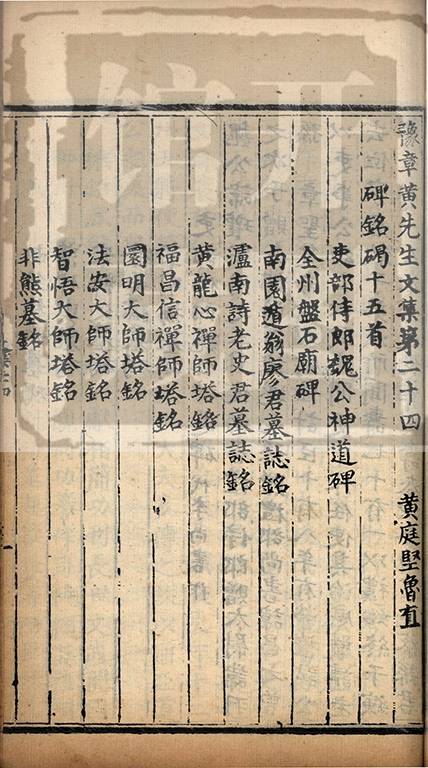 豫章黄先生文集第二十四 黄庭堅魯直
碑銘碣十五首
吏部侍郎魏公神道碑
全州盤石廟碑
南園遁翁廖君墓誌銘
瀘南詩老史君墓誌銘
黄龍心禪師塔銘
福昌信禪師塔銘
圓明大師塔銘
法安大師塔銘
智悟大師塔銘
非熊墓銘